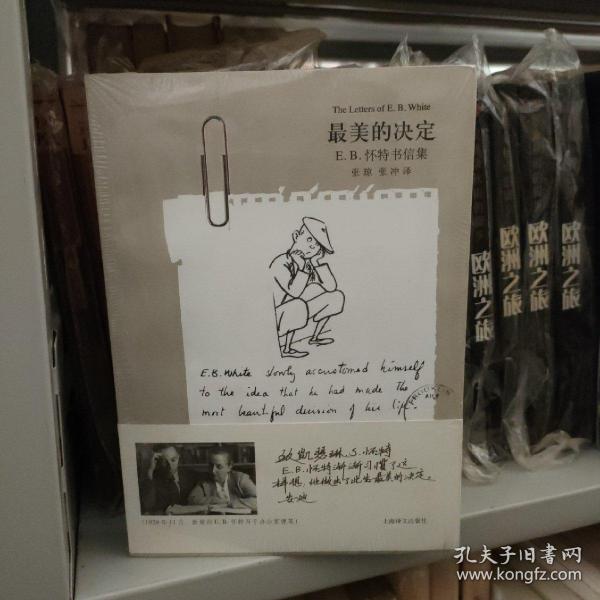 The Letters of E. B. White
最美的决定
E. B. 怀特书信集
张琼 张冲 译
E.B. White slowly accustomed himself
to the idea that he had made the
most beautiful decision of his life.
致凯瑟琳.S.怀特
E.B.怀特渐渐习惯了这
样想,他做出了此生最美的决定。
安迪
上海译文出版社
欧洲之旅
欧洲之旅
欧洲之旅
欧洲之旅
孔夫子旧书网
www.kongfz.com